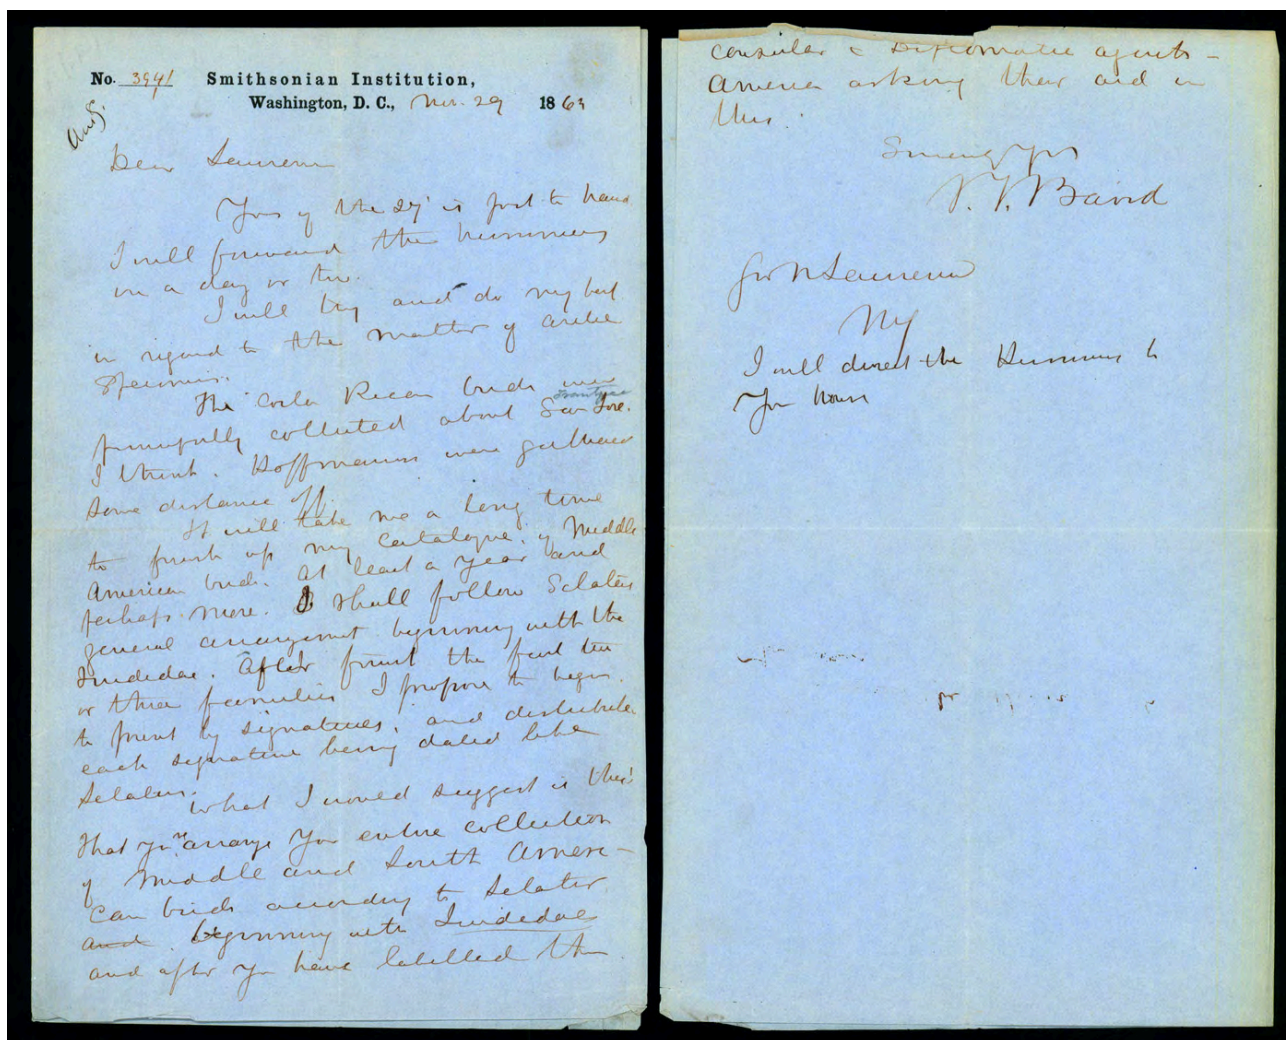 No. 3941 Smithsonian Institution,
Washington, D. C., Nov. 29 1863
Ansd.
Dear Lawrence
Yours of the 27 is just to hand
I will forward the hummers
in a day or two.
I will try and do my best
in regard to the matter of arctic
specimens.
The Costa Rican birds were
Frantzius
principally collected about San Jose.
I think. Hoffmanns were gathered
some distance off.
It will take me a long time
to finish up my catalogue of Middle
American birds. At least a year and
perhaps more. I shall follow Sclaters
general arrangement beginning with the
Turdidae. After finish the first two
or three families I propose to begin
to print by signatures, and distribute
each signature being dated like
Sclaters.
What I would suggest is this
that you rearrange your entire collection
of Middle and South Ameri-
can birds according to Sclater
and beginning with Turdidae
and after you have labelled them
consular & Diplomatic agents -
America asking their aid in
this.
Sincerely Yrs
S. F. Baird
Geo N Lawrence
NY
I will direct the Hummers to
your house